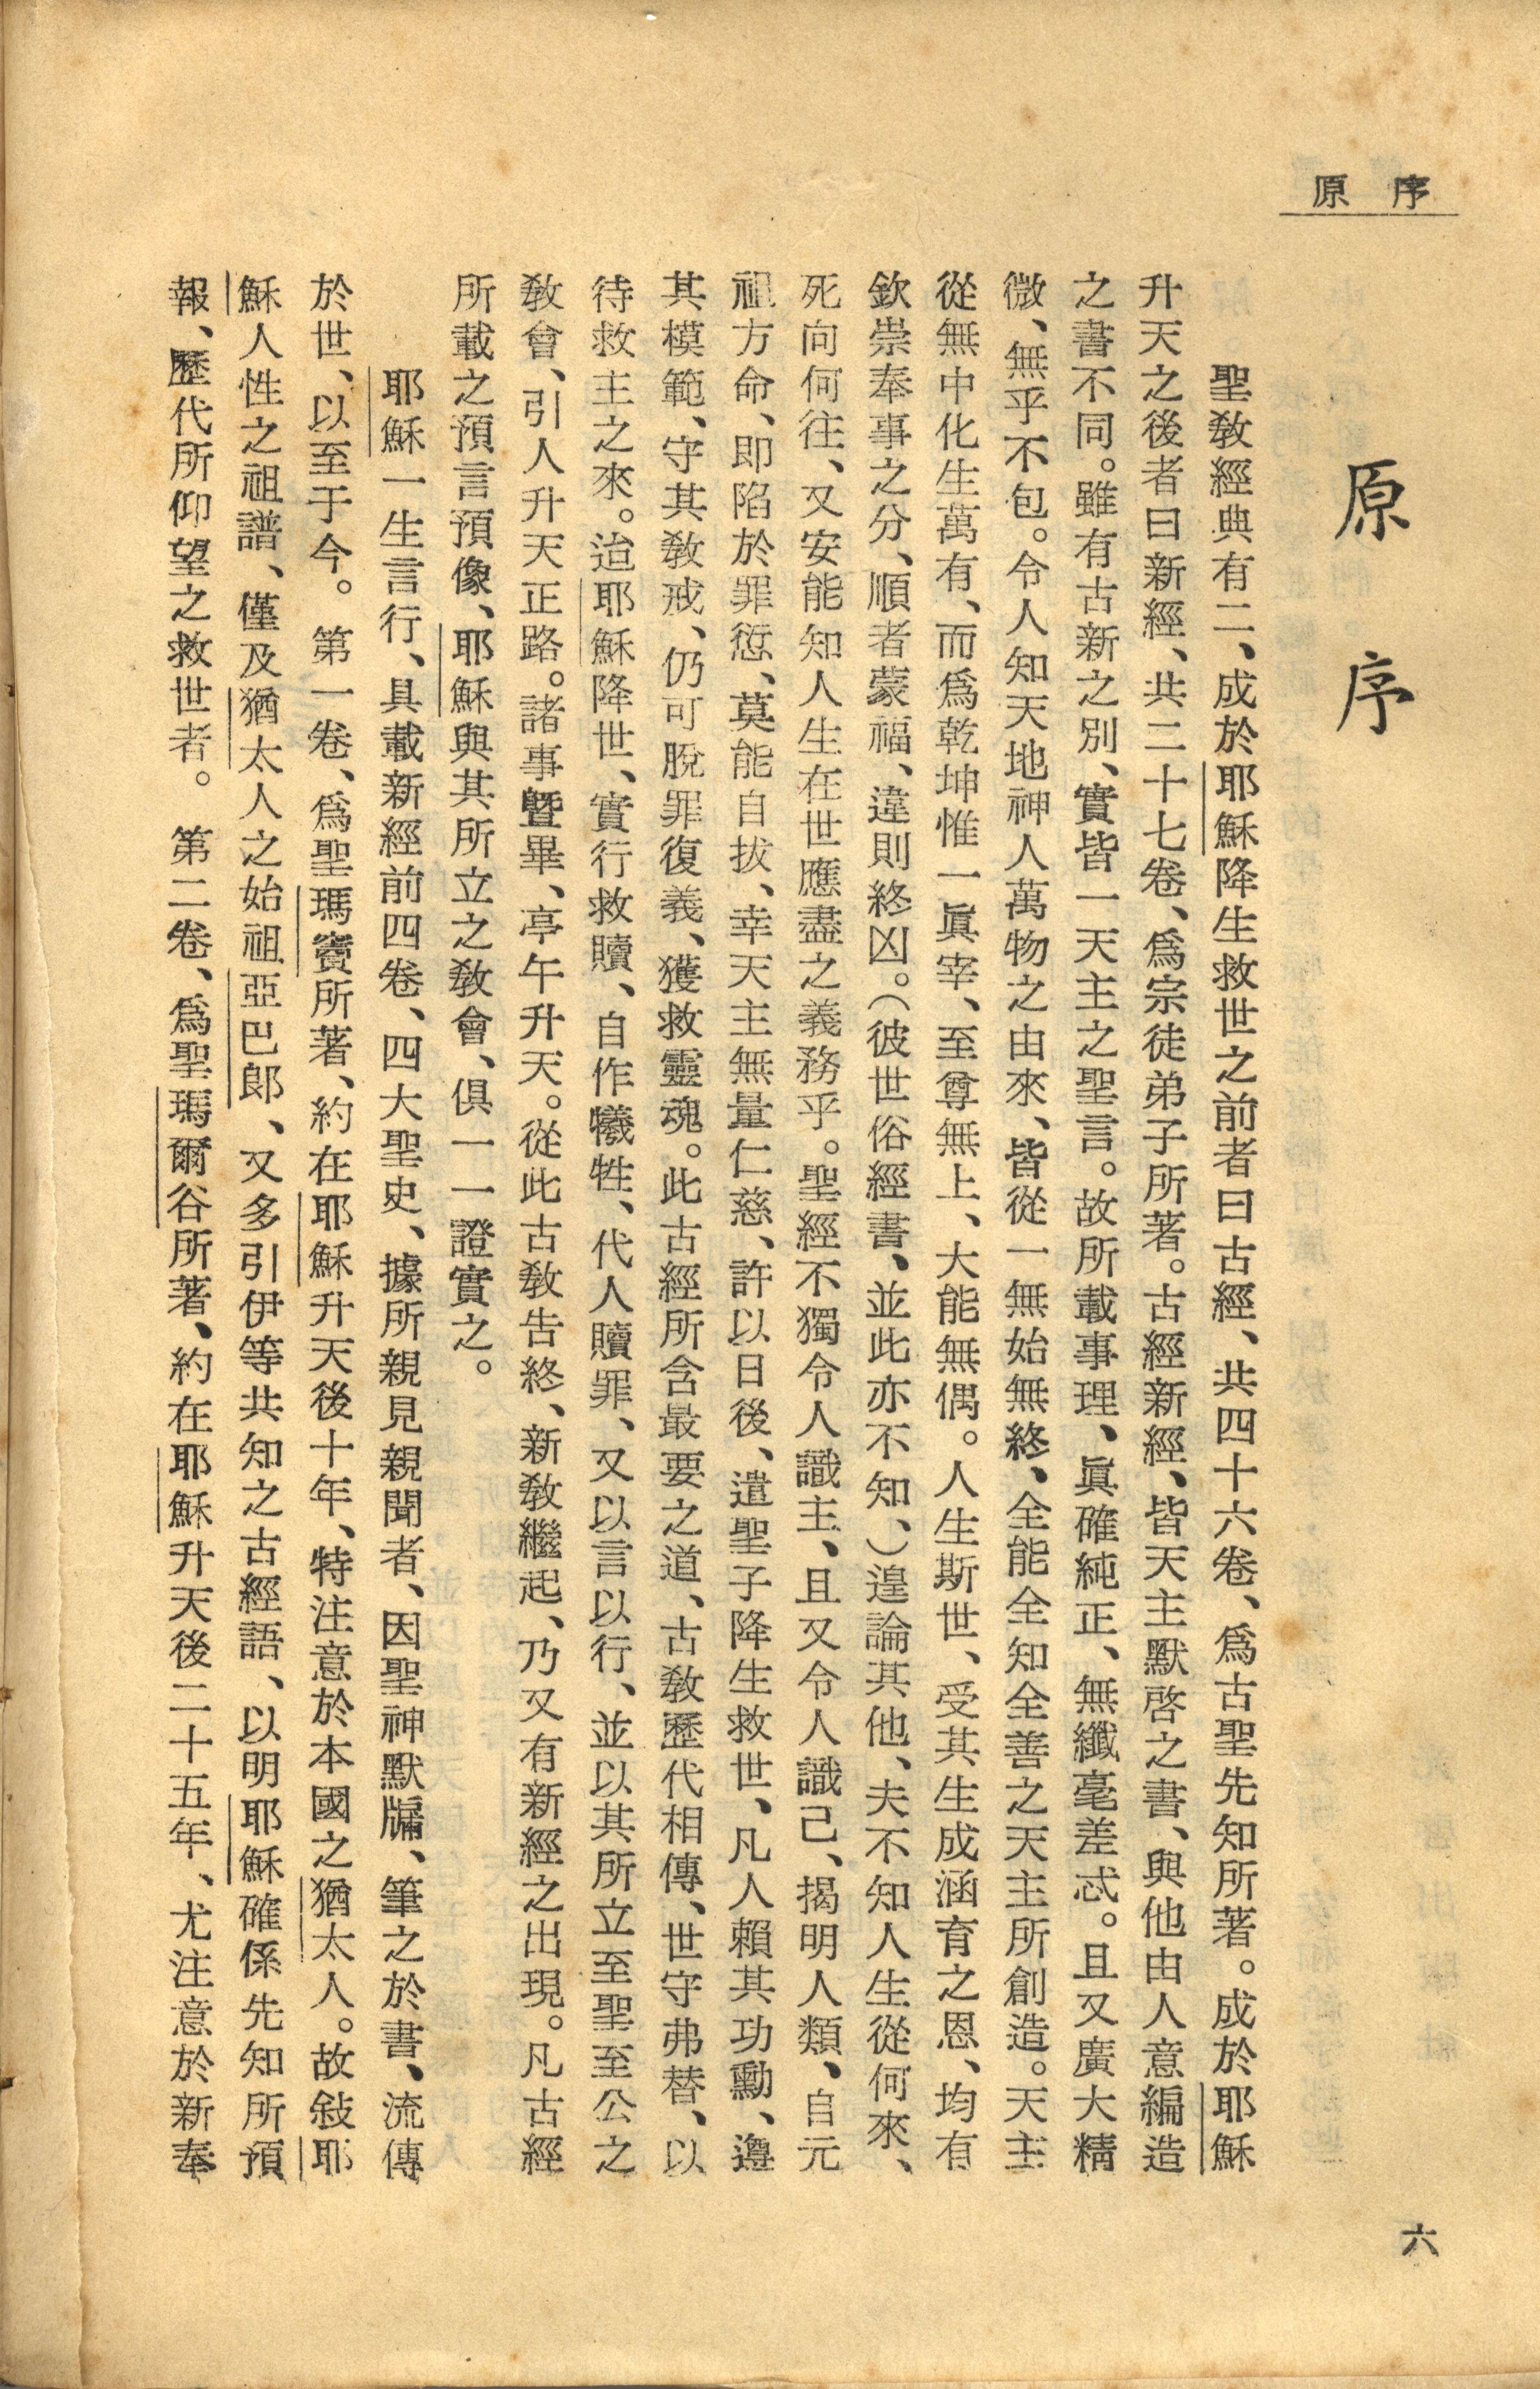 原序
原序
聖敎經典有二、成於耶穌降生救世之前者曰古經、共四十六卷、爲古聖先知所著。成於耶穌
升天之後者曰新經、共二十七卷、爲宗徒弟子所著。古經新經、皆天主默啓之書、與他由人意編造
之書不同。雖有古新之別、實皆一天主之聖言。故所載事理、眞確純正、無纖毫差忒。且又廣大精
微、無乎不包。令人知天地神人萬物之由來、皆從一無始無終、全能全知全善之天主所創造。天主
從無中化生萬有、而爲乾坤惟一眞宰、至尊無上、大能無偶。人生斯世、受其生成涵育之恩、均有
欽崇奉事之分、順者蒙福、違則終凶。(彼世俗經書、並此亦不知、)遑論其他、夫不知人生從何來、
死向何往、又安能知人生在世應盡之義務乎。聖經不獨令人識主、且又令人識己、揭明人類、自元
祖方命、即陷於罪愆、莫能自拔、幸天主無量仁慈、許以日後、遣聖子降生救世、凡人賴其功勳、遵
其模範、守其敎戒、仍可脫罪復義、獲救靈魂。此古經所含最要之道、古敎歷代相傳、世守弗替、以
待救主之來。迨耶穌降世、實行救贖、自作犧牲、代人贖罪、又以言以行、並以其所立至聖至公之
敎會、引人升天正路。諸事曁畢、亭午升天。從此古敎告終、新敎繼起、乃又有新經之出現。凡古經
所載之預言預像、耶穌與其所立之敎會、俱一一證實之。
耶穌一生言行、具載新經前四卷、四大聖史、據所親見親聞者、因聖神默牖、筆之於書、流傳
於世、以至于今。第一卷、爲聖瑪竇所著、約在耶穌升天後十年、特注意於本國之猶太人。故敍耶
穌人性之祖譜、僅及猶太人之始祖亞巴郎、又多引伊等共知之古經語、以明耶穌確係先知所預
報、歷代所仰望之救世者。第二卷、爲聖瑪爾谷所著、約在耶穌升天後二十五年、尤注意於新奉
六